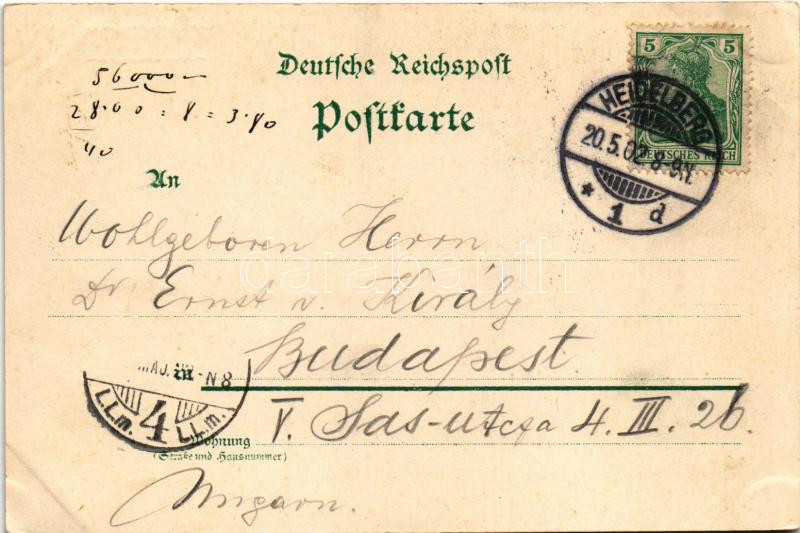 56000
28.00 = 8 = 3.80
40
Deutsche Reichspost
Postkarte
5 5
DEUTSCHES REICH
HEIDELBERG
20.5.02. 8-9V.
* 1 d
An
Wohlgeboren Herrn
Dr Ernst v. Király
darabanth
in Budapest.
MAJ. N8
4
L.L.m. L.L.m.
Wohnung V. Sas-utcza 4. III. 26.
(Straße und Hausnummer)
Ungarn.